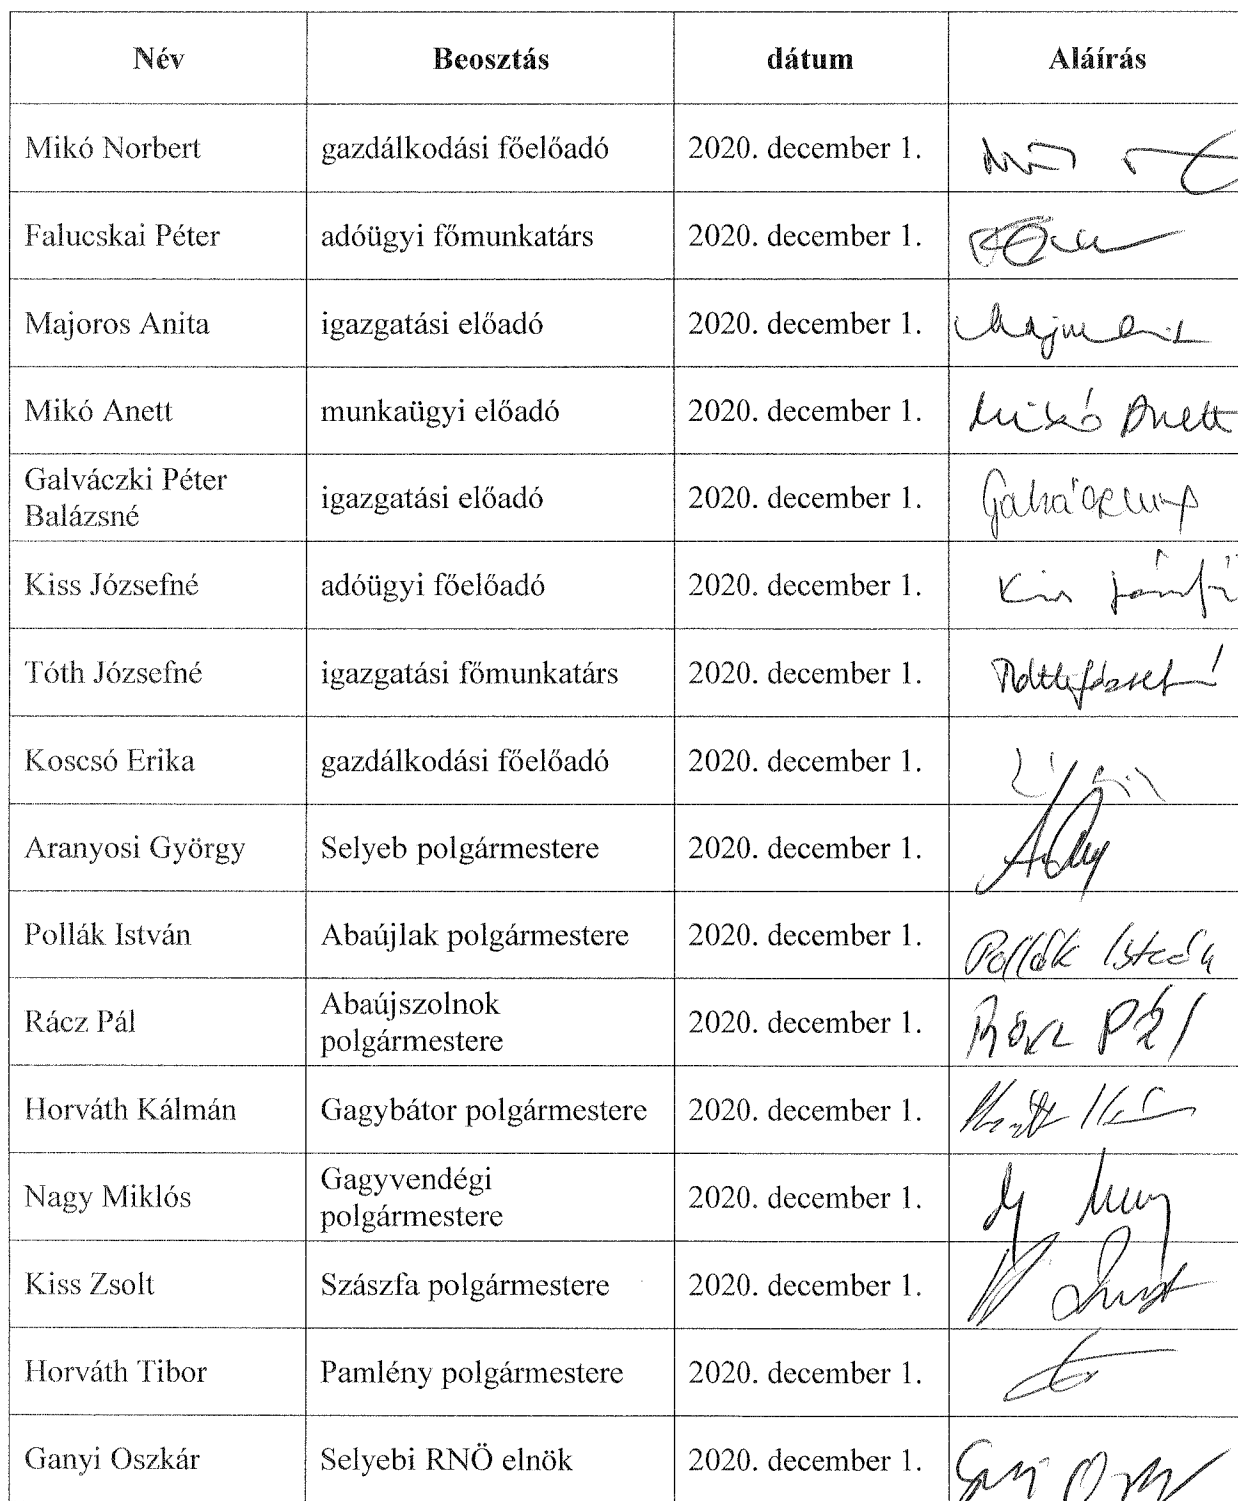 Név Beosztás dátum Aláírás
Mikó Norbert gazdálkodási főelőadó 2020. december 1.
Falucskai Péter adóügyi főmunkatárs 2020. december 1.
Majoros Anita igazgatási előadó 2020. december 1.
Mikó Anett munkaügyi előadó 2020. december 1. Mikó Anett
Galváczki Péter
Balázsné igazgatási előadó 2020. december 1.
Kiss Józsefné adóügyi főelőadó 2020. december 1.
Tóth Józsefné igazgatási főmunkatárs 2020. december 1.
Koscsó Erika gazdálkodási főelőadó 2020. december 1.
Aranyosi György Selyeb polgármestere 2020. december 1.
Pollák István Abaújlak polgármestere 2020. december 1. Pollák István
Rácz Pál Abaújszolnok
polgármestere 2020. december 1. Rácz Pál
Horváth Kálmán Gagybátor polgármestere 2020. december 1.
Nagy Miklós Gagyvendégi
polgármestere 2020. december 1.
Kiss Zsolt Szászfa polgármestere 2020. december 1.
Horváth Tibor Pamlény polgármestere 2020. december 1.
Ganyi Oszkár Selyebi RNÖ elnök 2020. december 1.